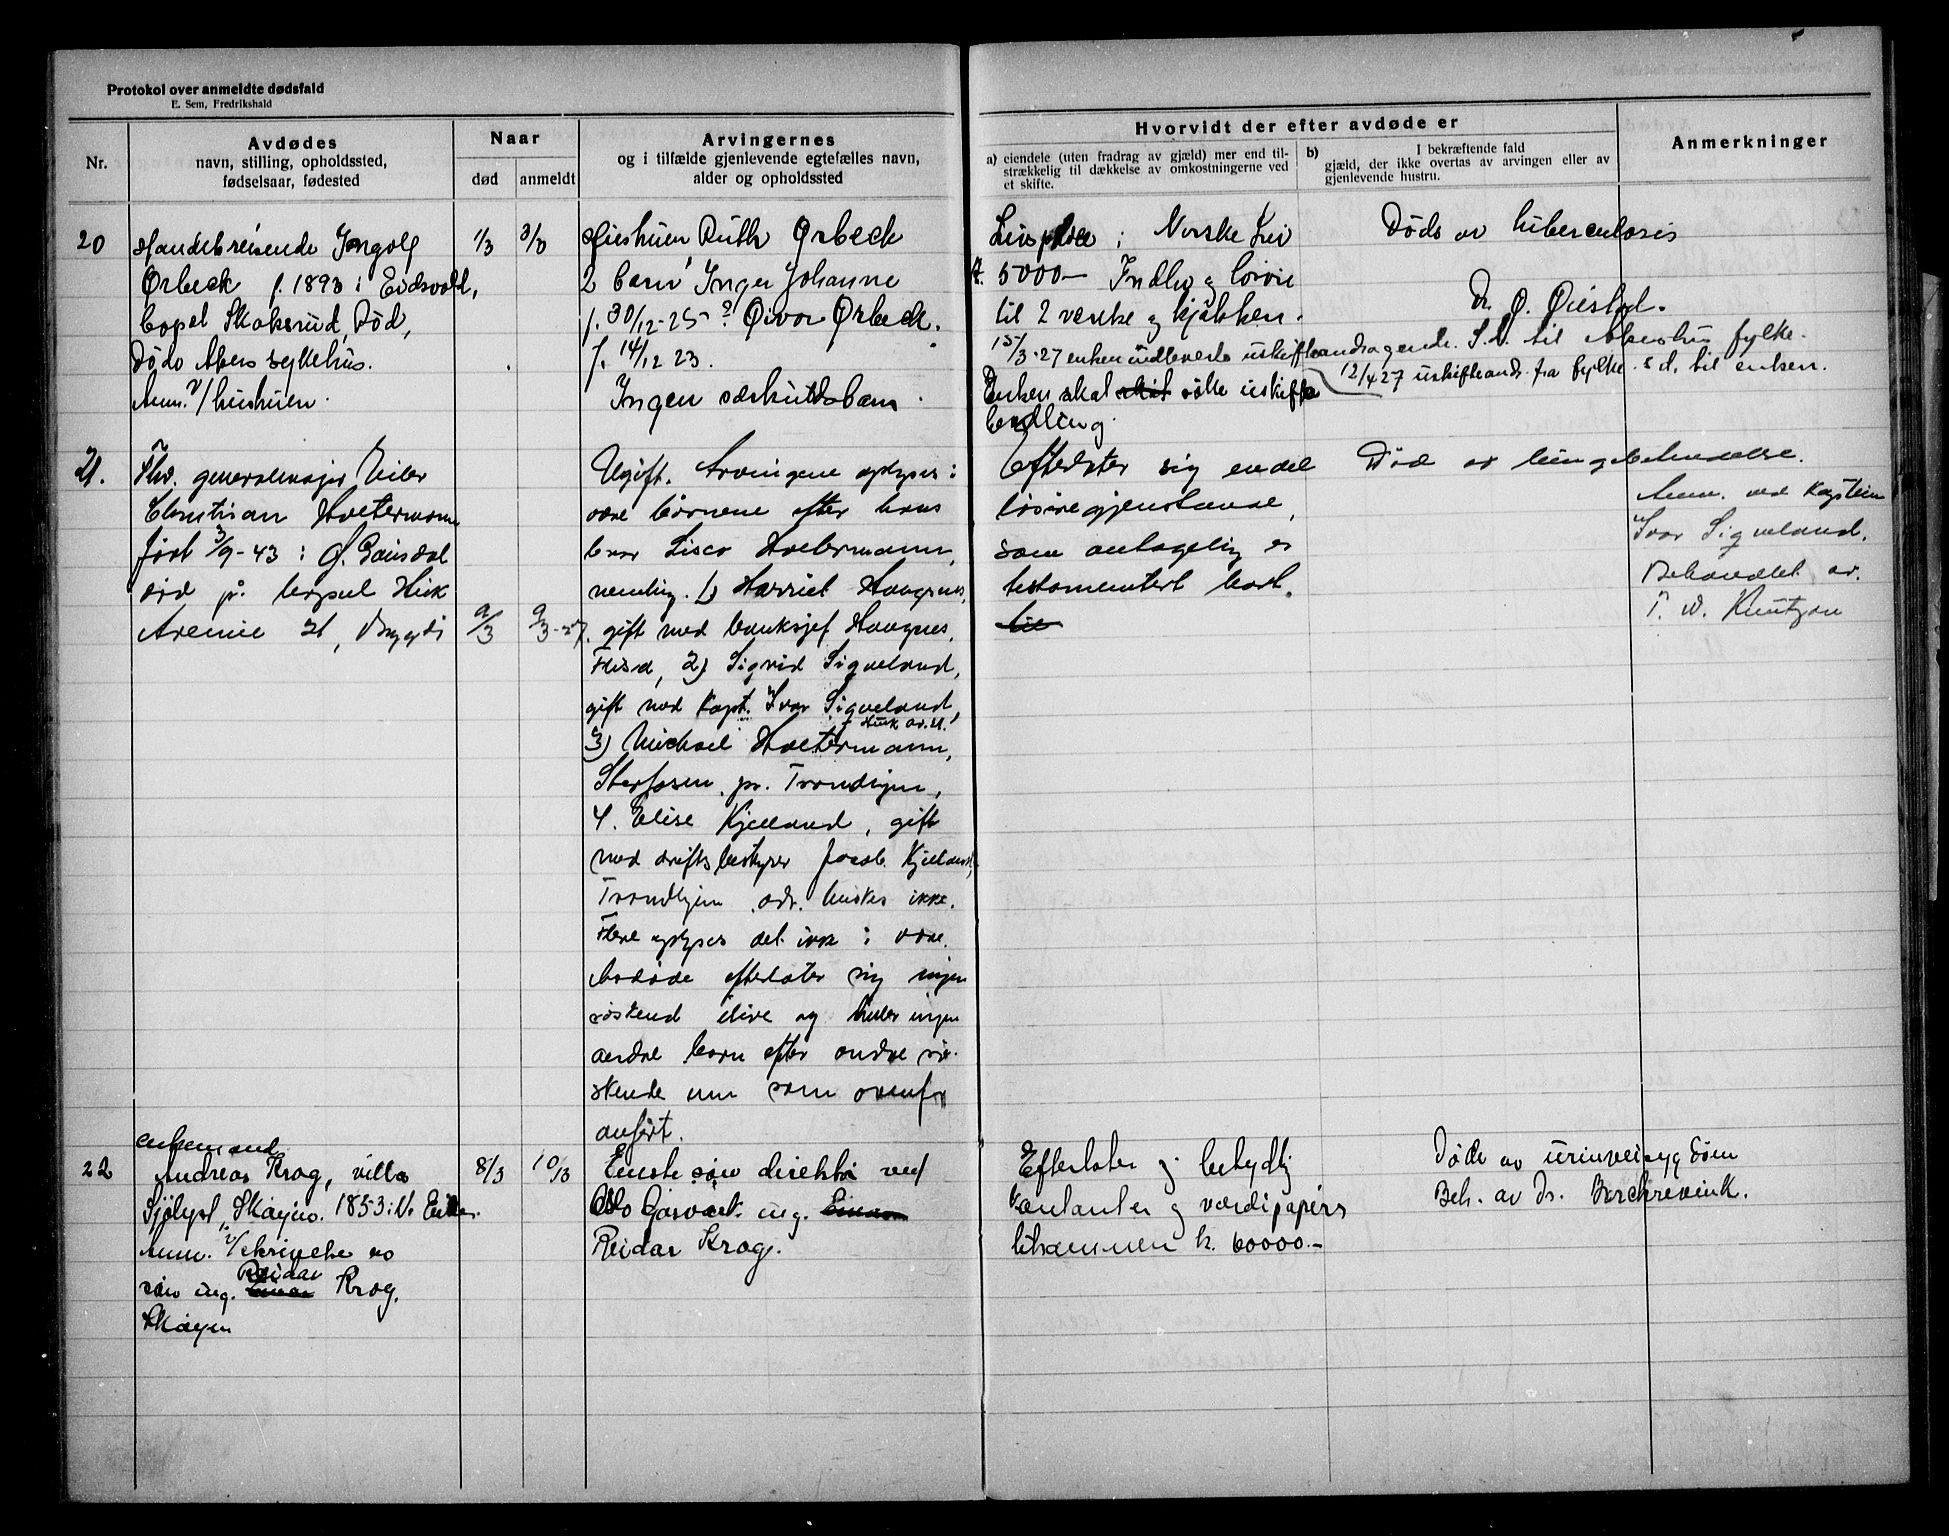 Protokol over anmeldte dødsfald
E. Sem, Fredrikshald
Nr.
Avdødes
navn, stilling, opholdssted,
fødselsaar, fødested
Naar
død
anmeldt
Arvingernes
og i tilfælde gjenlevende egtefælles navn,
alder og opholdssted
Hvorvidt der efter avdøde er
a) eiendele (uten fradrag av gjæld) mer end til-
strækkelig til dækkelse av omkostningerne ved
et skifte.
b) I bekræftende fald
gjæld, der ikke overtas av arvingen eller av
gjenlevende hustru.
Anmerkninger
20
Handelsreisende Ingolf
Ørbeck f. 1893 i Eidsvold,
bopel Skøksrud, Død,
Døds Akers sykehus.
Anm. v/ hustruen.
1/3
3/3
Hustruen Ruth Ørbeck
2 barn, Inger Johanne
f. 30/12-25 2 Øivor Ørbeck.
f. 14/12 23.
Ingen særkuldsbarn.
Livspolice i Norske Liv
5000- Indbo & løsøre
til 2 værelse og kjøkken.
15/3-27 enken utleverte uskifteandragende. S.d. til Akershus fylke.
12/4 27 uskifteandr. fra fylke s.d. til enken.
Enken skal søke uskifte
bevilling
Døds av tuberculosis
Dr. O. Øiestad.
21.
Fhv. generalmajor Eiler
Christian Holtermann
født 3/9-43 i Ø. Gausdal
død på bopæl Huk
Avenue 21, Bygdø
9/3
9/3-27.
Ugift. Arvingene oplyses i
være børnene efter hans
bror Lisco Holtermann,
nemlig. 1) Harriet Haagnes,
gift med banksjef Haagnes,
2) Sigrid Sigveland,
gift med Kapt. Ivar Sigveland,
Huk av. 21.
3) Michael Holtermann,
Sterfosen, pr. Trondhjem,
4. Elise Kjelland, gift
med driftsbestyrer Jacob Kjelland,
Trondhjem adr. huskes ikke.
Flere oplyses det ikke i være.
Avdøde efterlater sig ingen
søskend ilive og heller ingen
andre barn efter andre sø-
skende enn som ovenfor
anført.
Efterlater sig endel
løsøregjenstande,
som antagelig er
testamentert bort.
til
Død av lungebetendelse.
Anm. ved Kaptein
Ivar Sigveland.
Behandlet av.
T. W. Knutzon
22
enkemand
Andreas Krog, villa
Sjølyst, Skøyen. 1853 i N. Eiker.
Anm. v/skrivelse av
Reidar
søn ing. Einar Krog,
Skøyen
8/3
10/3
Eneste søn direktør ved
Oslo Gasverk. ing. Einar
Reidar Krog.
Efterlater sig betydlig
kontanter og værdipapirer
tilsammen k. 60000.-
Døde av urinveisygdom
Beh. av Dr. Borchrevink.